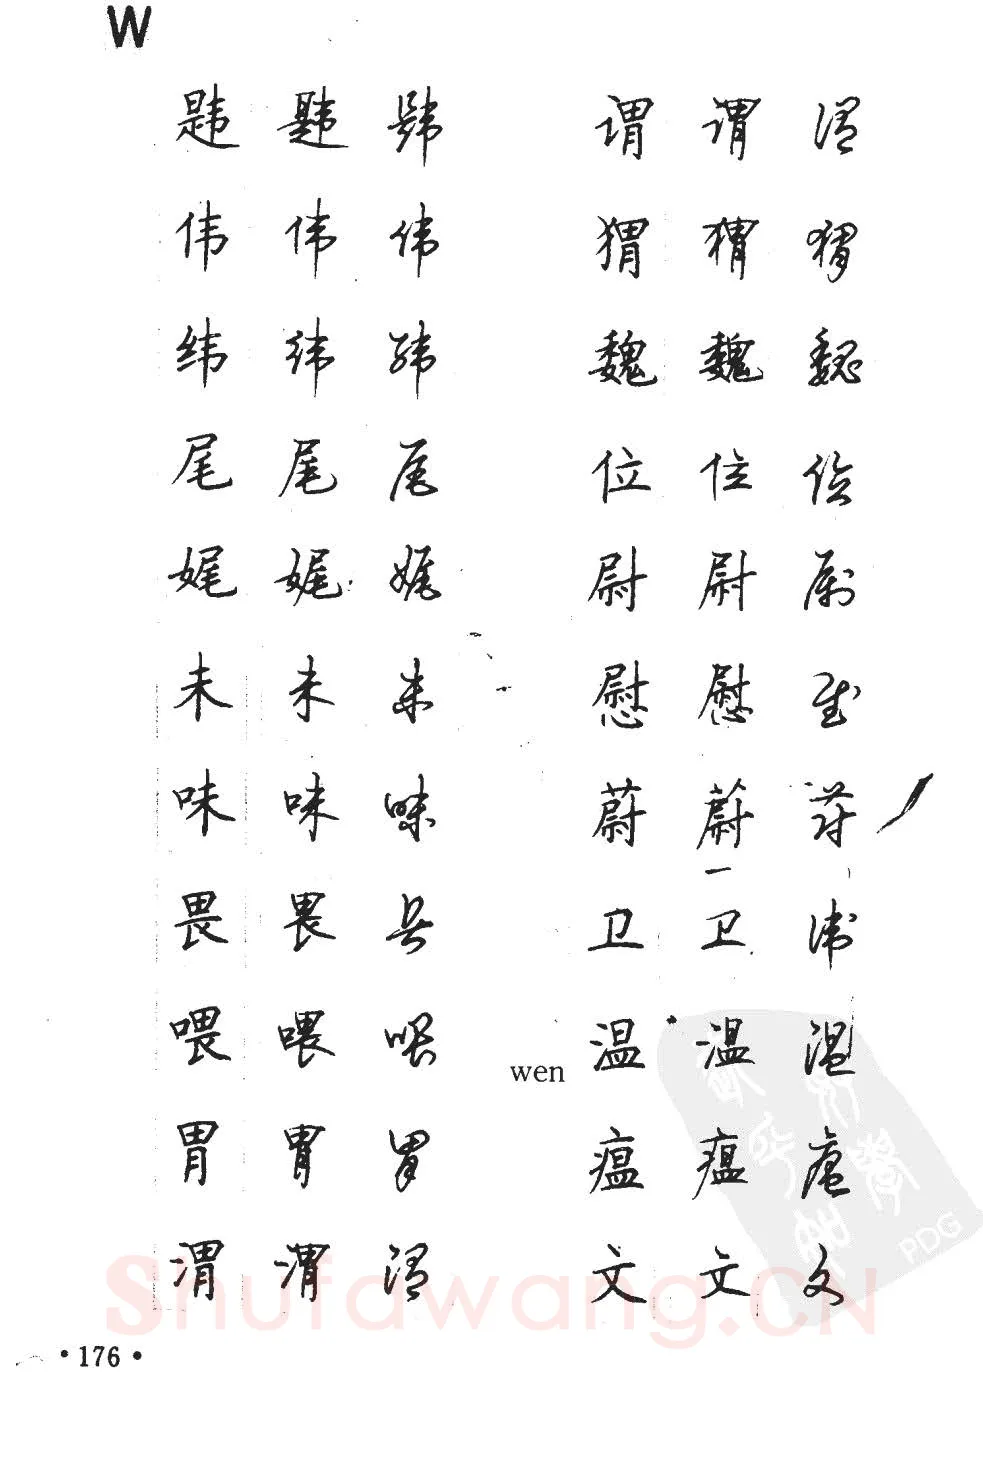 W
韪 韪 韪
伟 伟 伟
纬 纬 纬
尾 尾 尾
娓 娓 娓
未 未 未
味 味 味
畏 畏 畏
喂 喂 喂
胃 胃 胃
渭 渭 渭
谓 谓 谓
猬 猬 猬
魏 魏 魏
位 位 位
尉 尉 尉
慰 慰 慰
蔚 蔚 蔚
卫 卫 卫
wen 温 温 温
瘟 瘟 瘟
文 文 文
·176·
Shufawang.CN
PDG